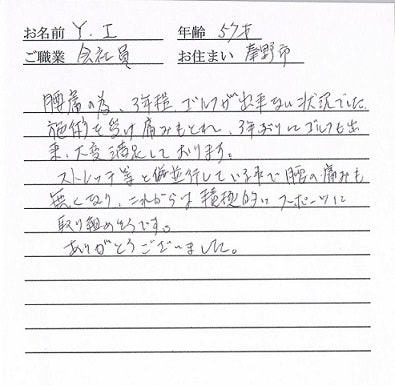 お名前 Y. I 年齢 57才
ご職業 会社員 お住まい 秦野市
腰痛の為、3年程ゴルフが出来ない状況でした。
施術を受け痛みもとれ、3年ぶりにゴルフも出
来、大変満足しております。
ストレッチ等と併並行している事で腰の痛みも
無くなり、これからは積極的にスポーツに
取り組めそうです。
ありがとうございました。